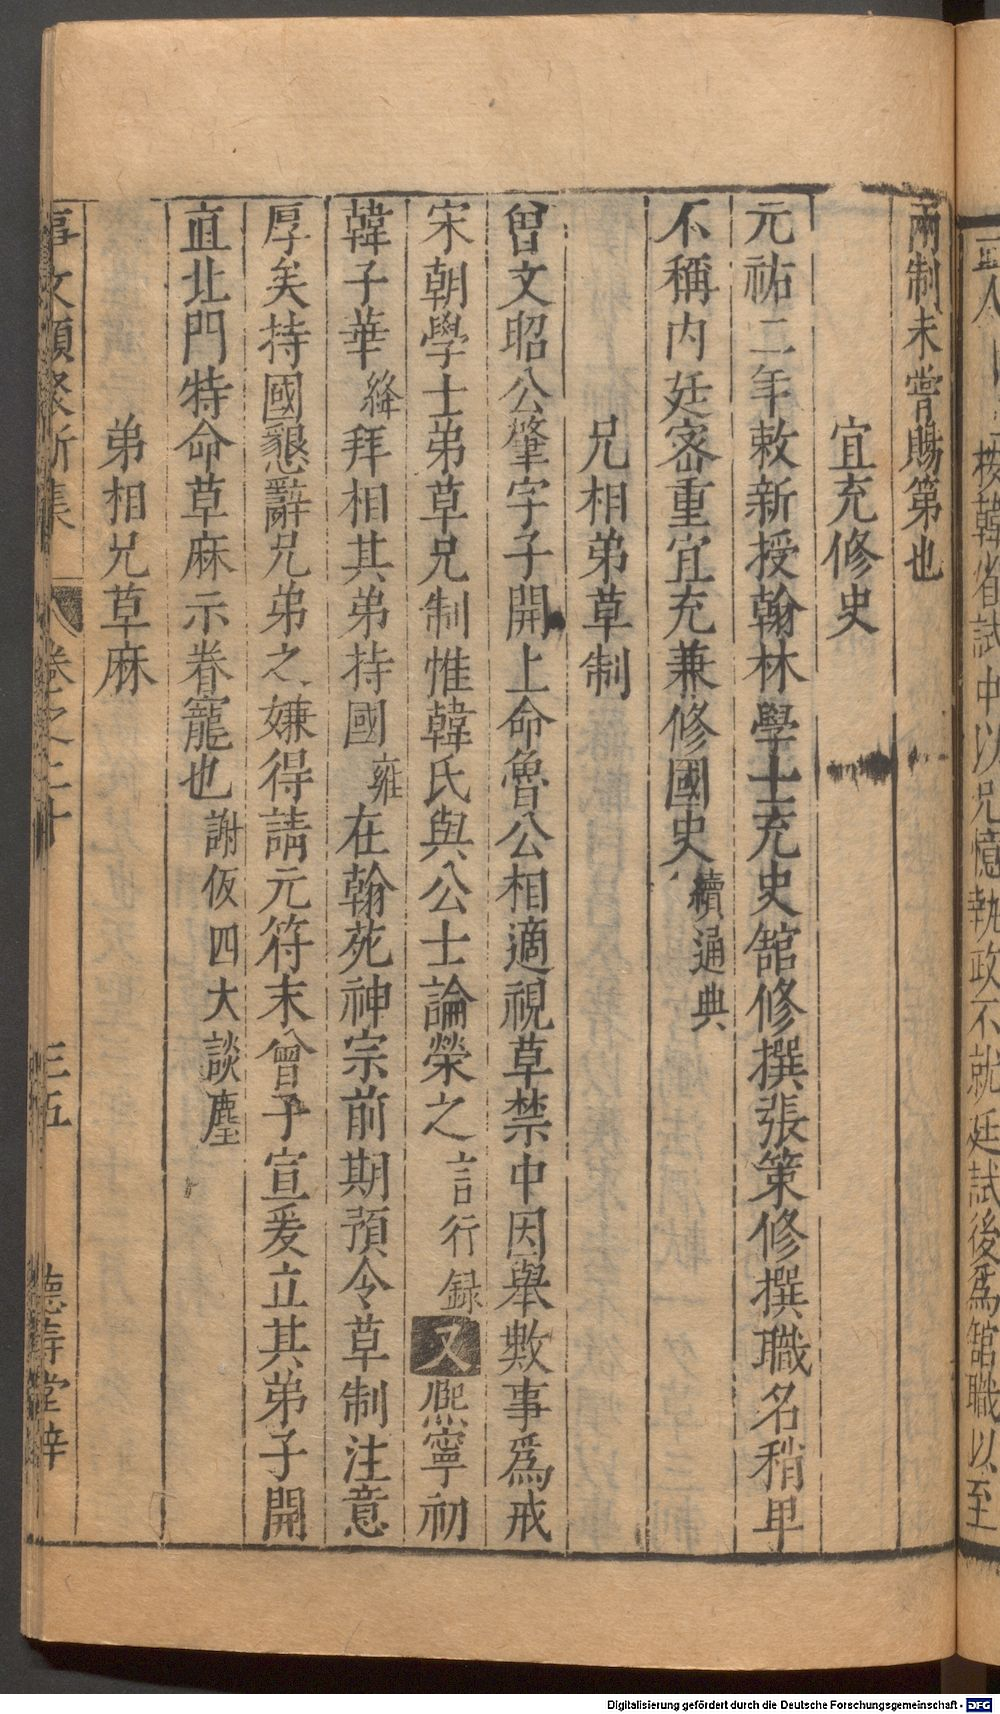 一按韓省試中以兄億執政不就廷試後爲舘職以至
兩制未嘗賜第也
宜充修史
元祐二年敕新授翰林學士充史舘修撰張策修撰職名稍卑
不稱内廷密重宜充兼修國史續通典
兄相弟草制
曾文昭公肇字子開上命魯公相適視草禁中因舉數事爲戒
宋朝學士弟草兄制惟韓氏與公士論榮之言行録又熈寧初
韓子華絳拜相其弟持國雍在翰苑神宗前期預令草制注意
厚矣持國懇辭兄弟之嫌得請元符末曾子宣爰立其弟子開
直北門特命草麻示眷寵也謝伋四大談麈
弟相兄草麻
事文類聚新集 卷之二十 三五 德壽堂梓
Digitalisierung gefördert durch die Deutsche Forschungsgemeinschaft - DFG